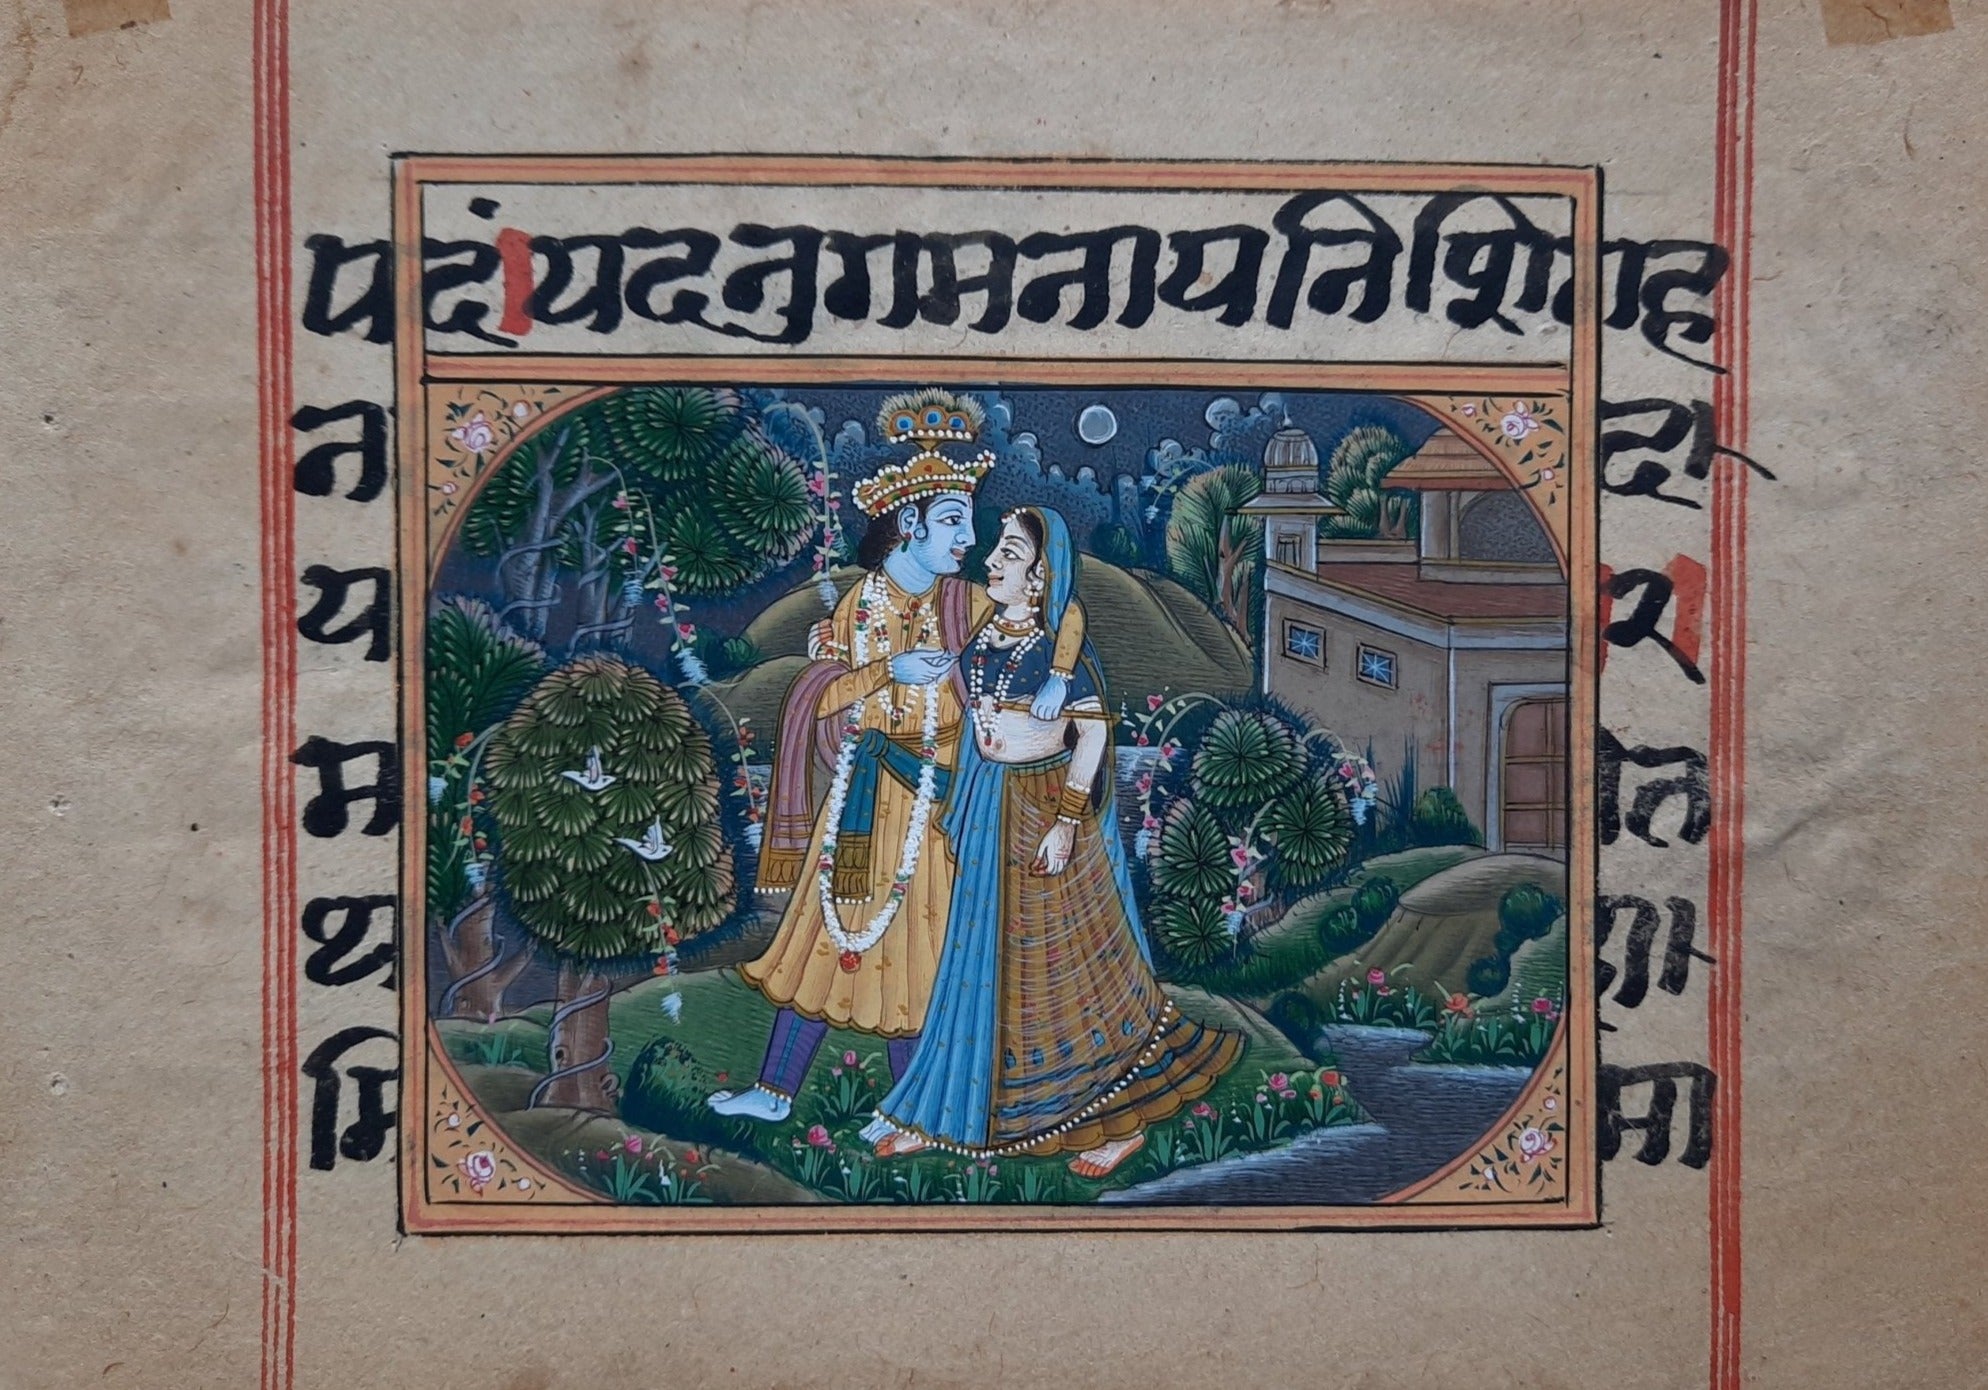 पदं।यदनुगमनायनिशिगह
न दो
य २
म ति
थ
मि मा